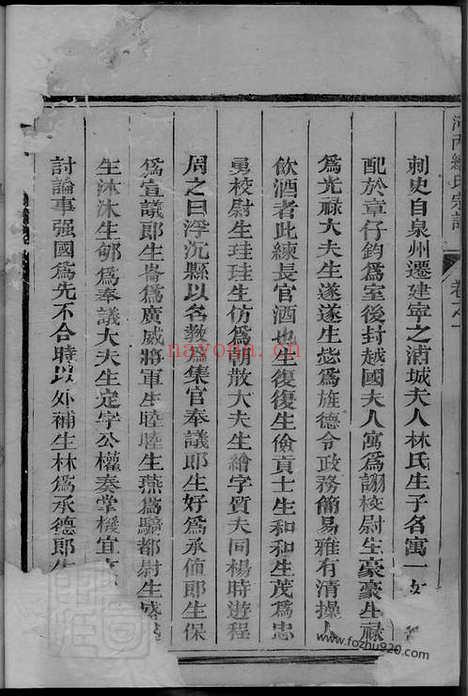 河內練氏宗譜 卷之一
刺史自泉州遷建寧之浦城夫人林氏生子名寓一女
配於章仔鈞爲室後封越國夫人寓爲詡校尉生豪豪生祿
爲光祿大夫生遂遂生毖爲旌德令政務簡易雅有清操人
飲酒者此練長官酒也生復復生儉貢士生和和生茂爲忠
勇校尉生珪珪生仿爲朝散大夫生繪字質夫同楊時遊程
周之曰浮沉縣以名教爲集官奉議郎生好爲承偵郎生保
爲宣議郎生崙爲廣威將軍生睦睦生燕爲驍都尉生盛
生沐沐生郇爲奉議大夫生定字公權奏掌機宜
討論事强國爲先不合時以外補生林爲承德郎生
nayona.cn
www.fozhu920.com